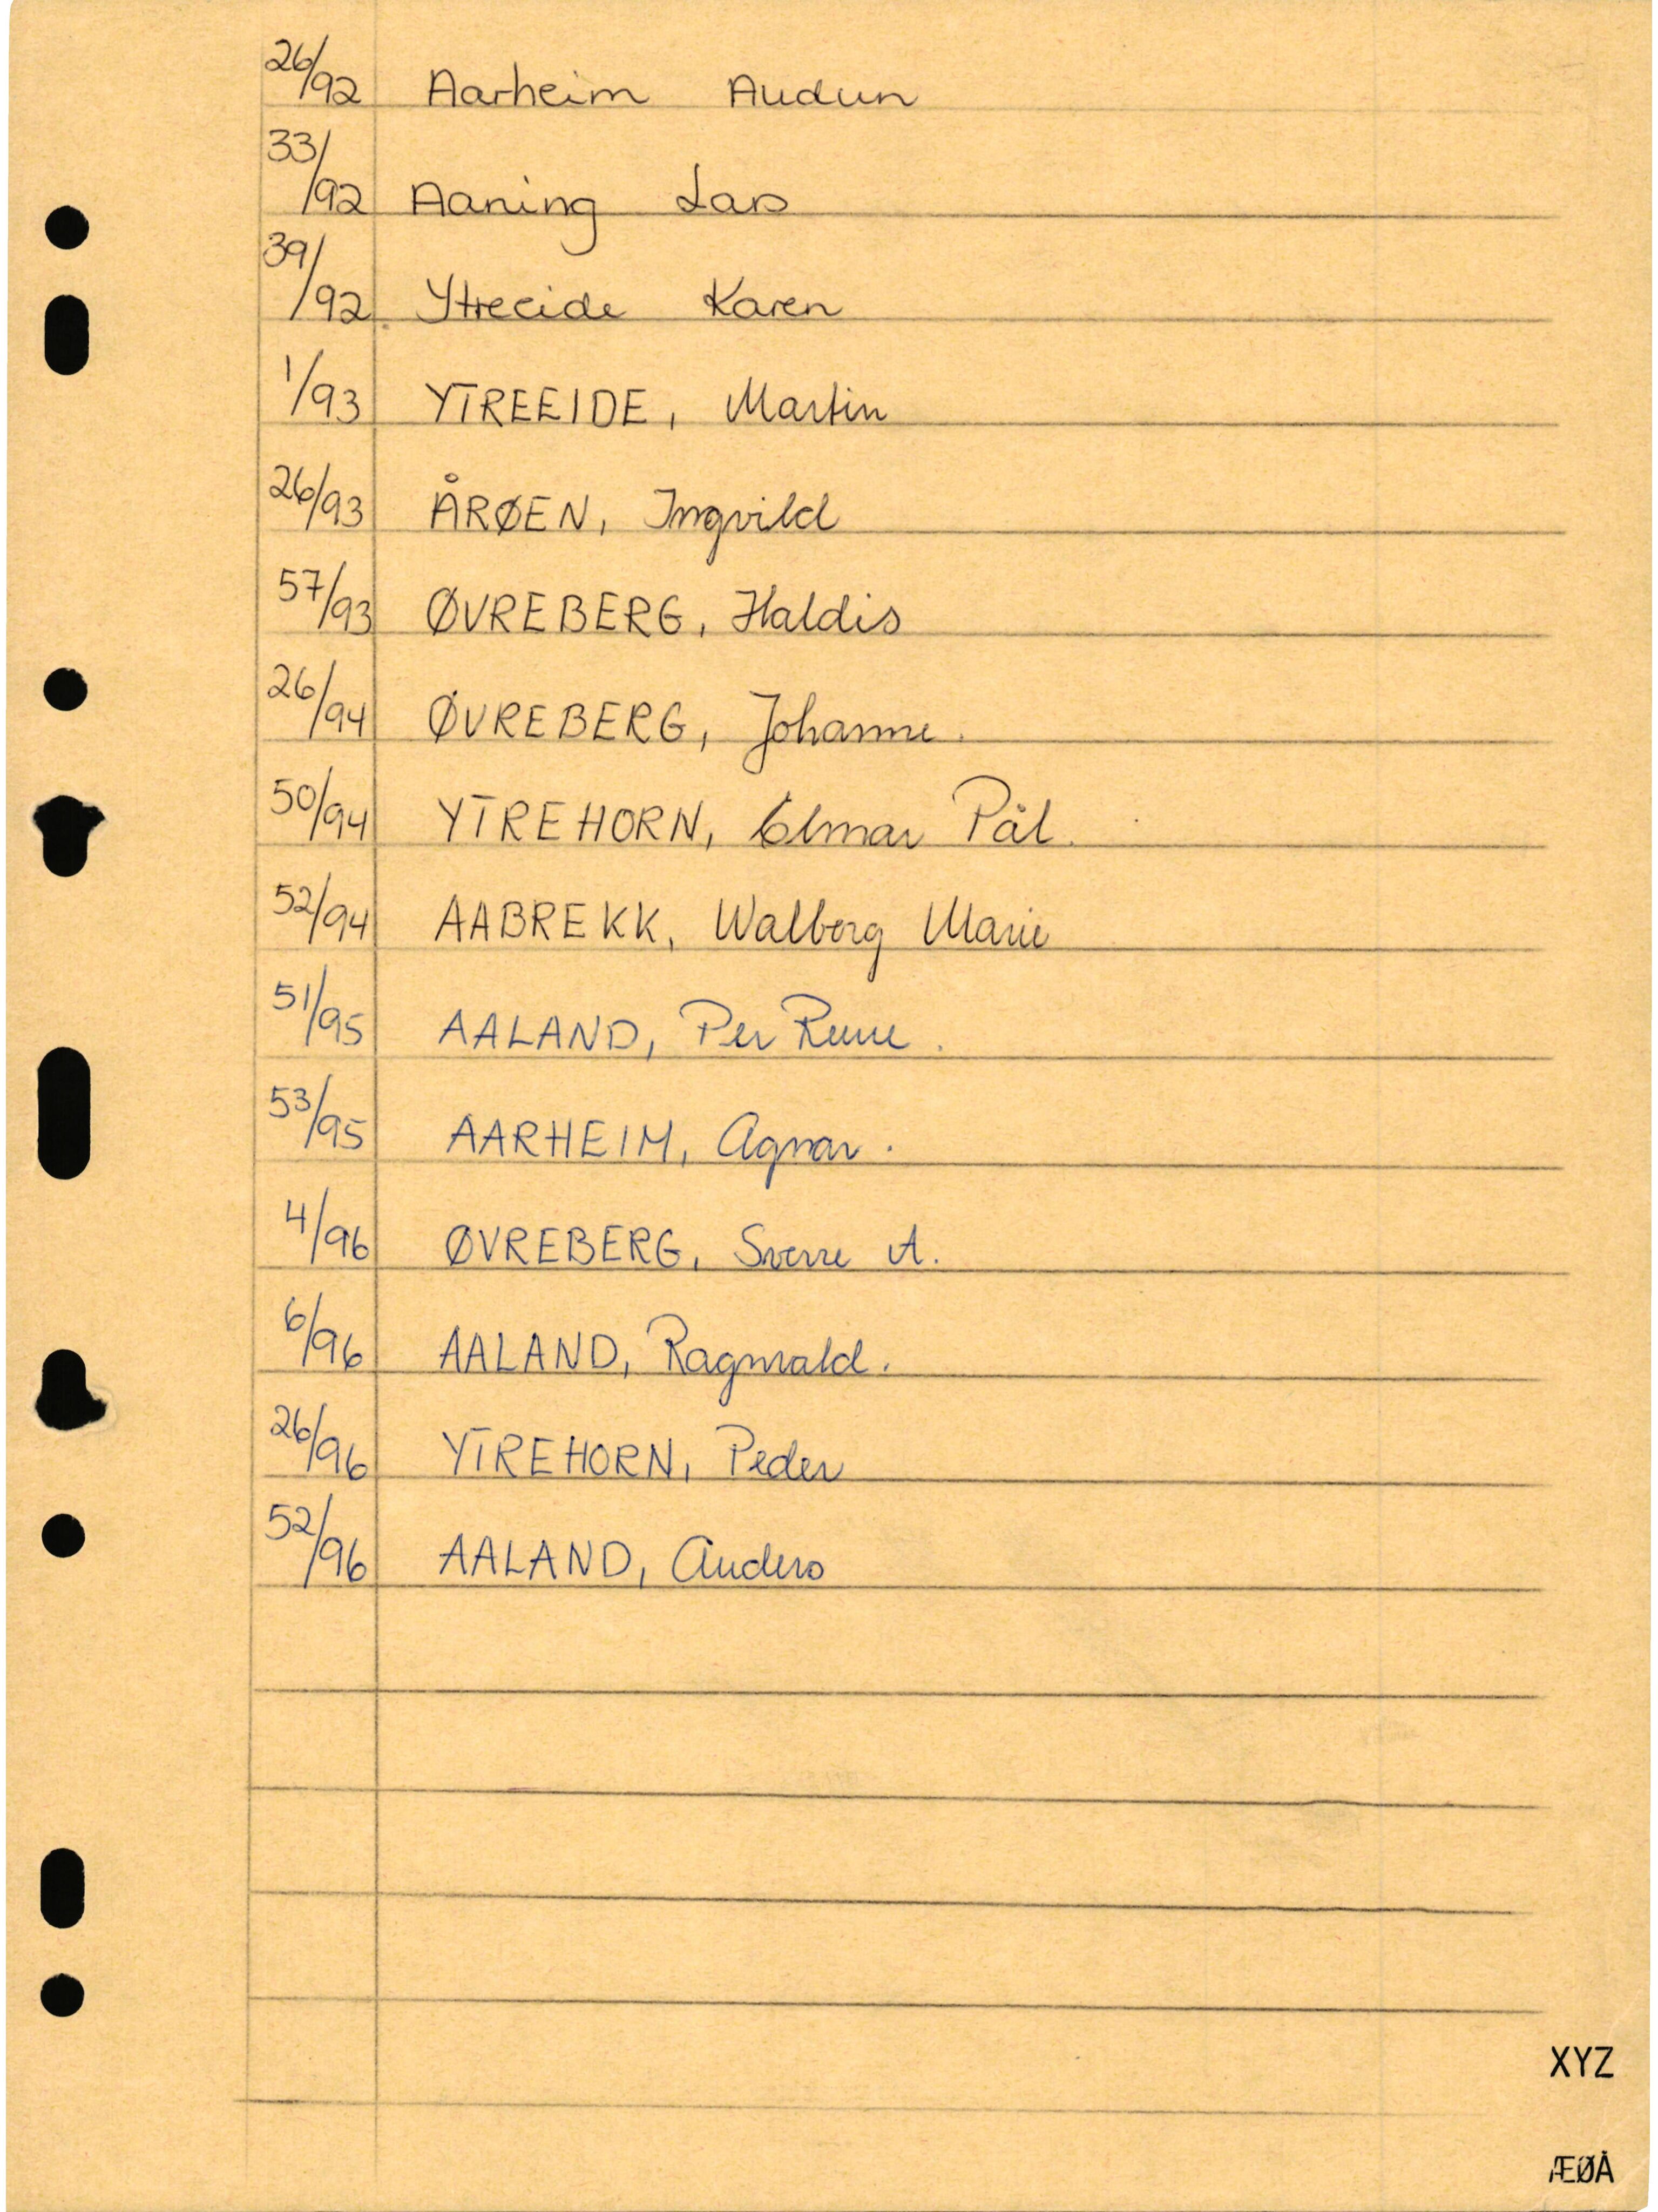 26/92 Aarheim Audun
33/92 Aaning Lars
39/92 Ytreeide Karen
1/93 YTREEIDE, Martin
26/93 ÅRØEN, Ingvild
57/93 ØVREBERG, Haldis
26/94 ØVREBERG, Johanne.
50/94 YTREHORN, Elmar Pål.
52/94 AABREKK, Walborg Marie
51/95 AALAND, Per Rune.
53/95 AARHEIM, Agnar.
4/96 ØVREBERG, Sverre A.
6/96 AALAND, Ragnvald.
26/96 YTREHORN, Peder
52/96 AALAND, Anders
XYZ
ÆØÅ